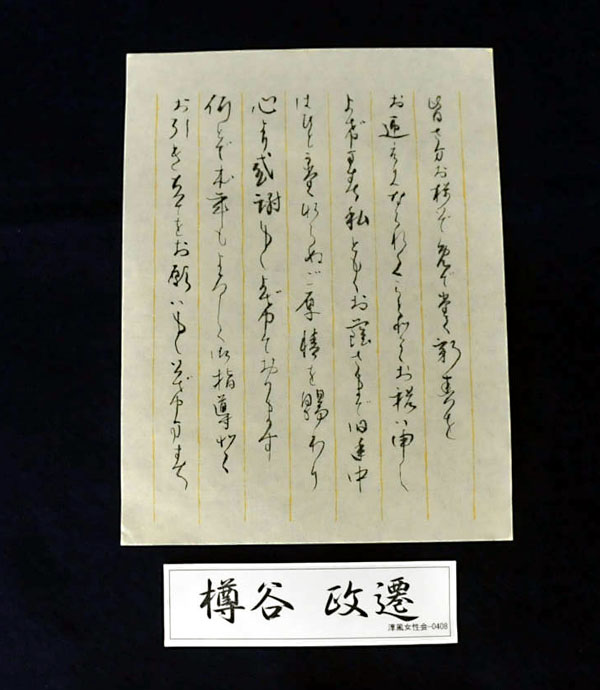 皆さ万お揃で免で堂く新春を
お迎えになられたことゝお祝い申し
上げます私どももお蔭さまで旧年中
はひと堂ならぬご厚情を賜わり
心より感謝申し上げております
何とぞ本年もよろしく御指導
お引き立てをお願い申し上げます
樽谷 政遷
淳風女性会-0408